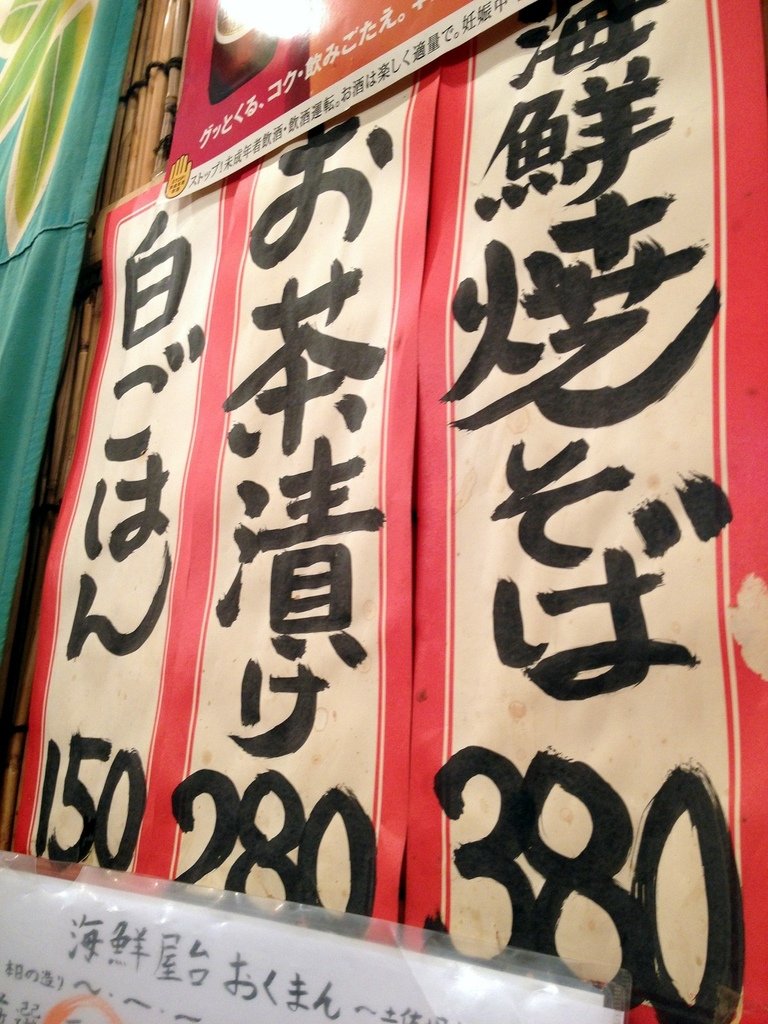 グッとくる、コク・飲みごたえ。
ストップ!未成年者飲酒・飲酒運転。お酒は楽しく適量で。妊娠中
海鮮焼そば
380
お茶漬け
280
白ごはん
150
海鮮屋台おくまん
本日の造り